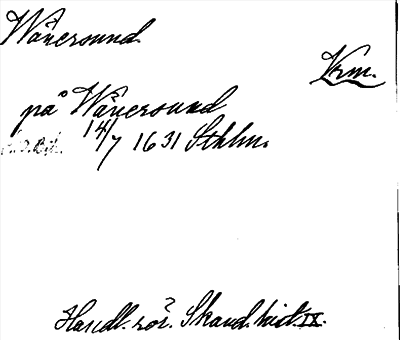 Wänersund.
Vrm.
på Wänersund
14/7 1631 Sthlm.
Handl. rör. Skand. hist. IX.